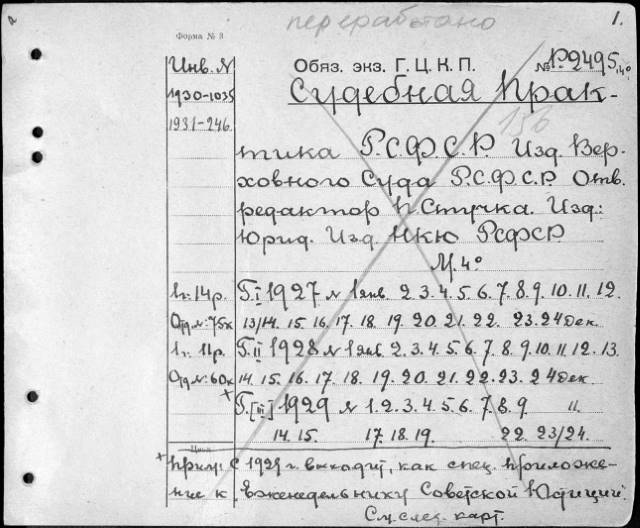 переработано
1.
Форма № 3
Инв. N
Обяз. экз. Г. Ц. К. П. № Р2495 4°
1930-1035
Судебная Прак-
1931-246.
156
тика Р.С.Ф.С.Р. Изд. Вер-
ховного Суда Р.С.Ф.С.Р. Отв.
редактор П. Стучка. Изд:
Юрид. Изд НКЮ РСФСР
М. 4°
1 г. 14 р. Г. I 1927 N 1 янв. 2. 3. 4. 5. 6. 7. 8. 9. 10. 11. 12.
Отд. N: 75к 13/14. 15. 16. 17. 18. 19. 20. 21. 22. 23. 24 Дек.
1 г. 11 р. Г. II 1928 N 1 янв. 2. 3. 4. 5. 6. 7. 8. 9. 10. 11. 12. 13.
Отд. N: 60к 14. 15. 16. 17. 18. 19. 20. 21. 22. 23. 24 Дек.
+ Г. [III] 1929 N 1. 2. 3. 4. 5. 6. 7. 8. 9. 11.
14. 15. 17. 18. 19. 22. 23/24.
Цена
+ Прим: С 1929 г. выходит, как спец. приложе-
ние к "Еженедельнику Советской Юстиции".
См. след. карт.